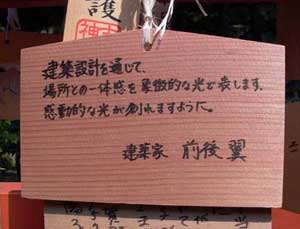 護
建築設計を通じて、
場所との一体感を象徴的な光で表します。
感動的な光が創れますように。
建築家 前後翼